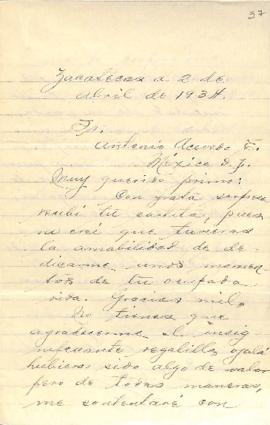 37
Zacatecas a 2 de
Abril de 1934.
Sr.
Antonio Acevedo E.
México D.F.
Muy querido primo:
Con grata sorpresa
recibí tu cartita, pues
no creí que tuvieras
la amabilidad de de-
dicarme unos momen-
tos de tu ocupada
vida. Gracias mil.
No tienes que
agradecerme el insig-
nificante regalillo, ojalá
hubiera sido algo de valor
pero de todas maneras,
me contentaré con